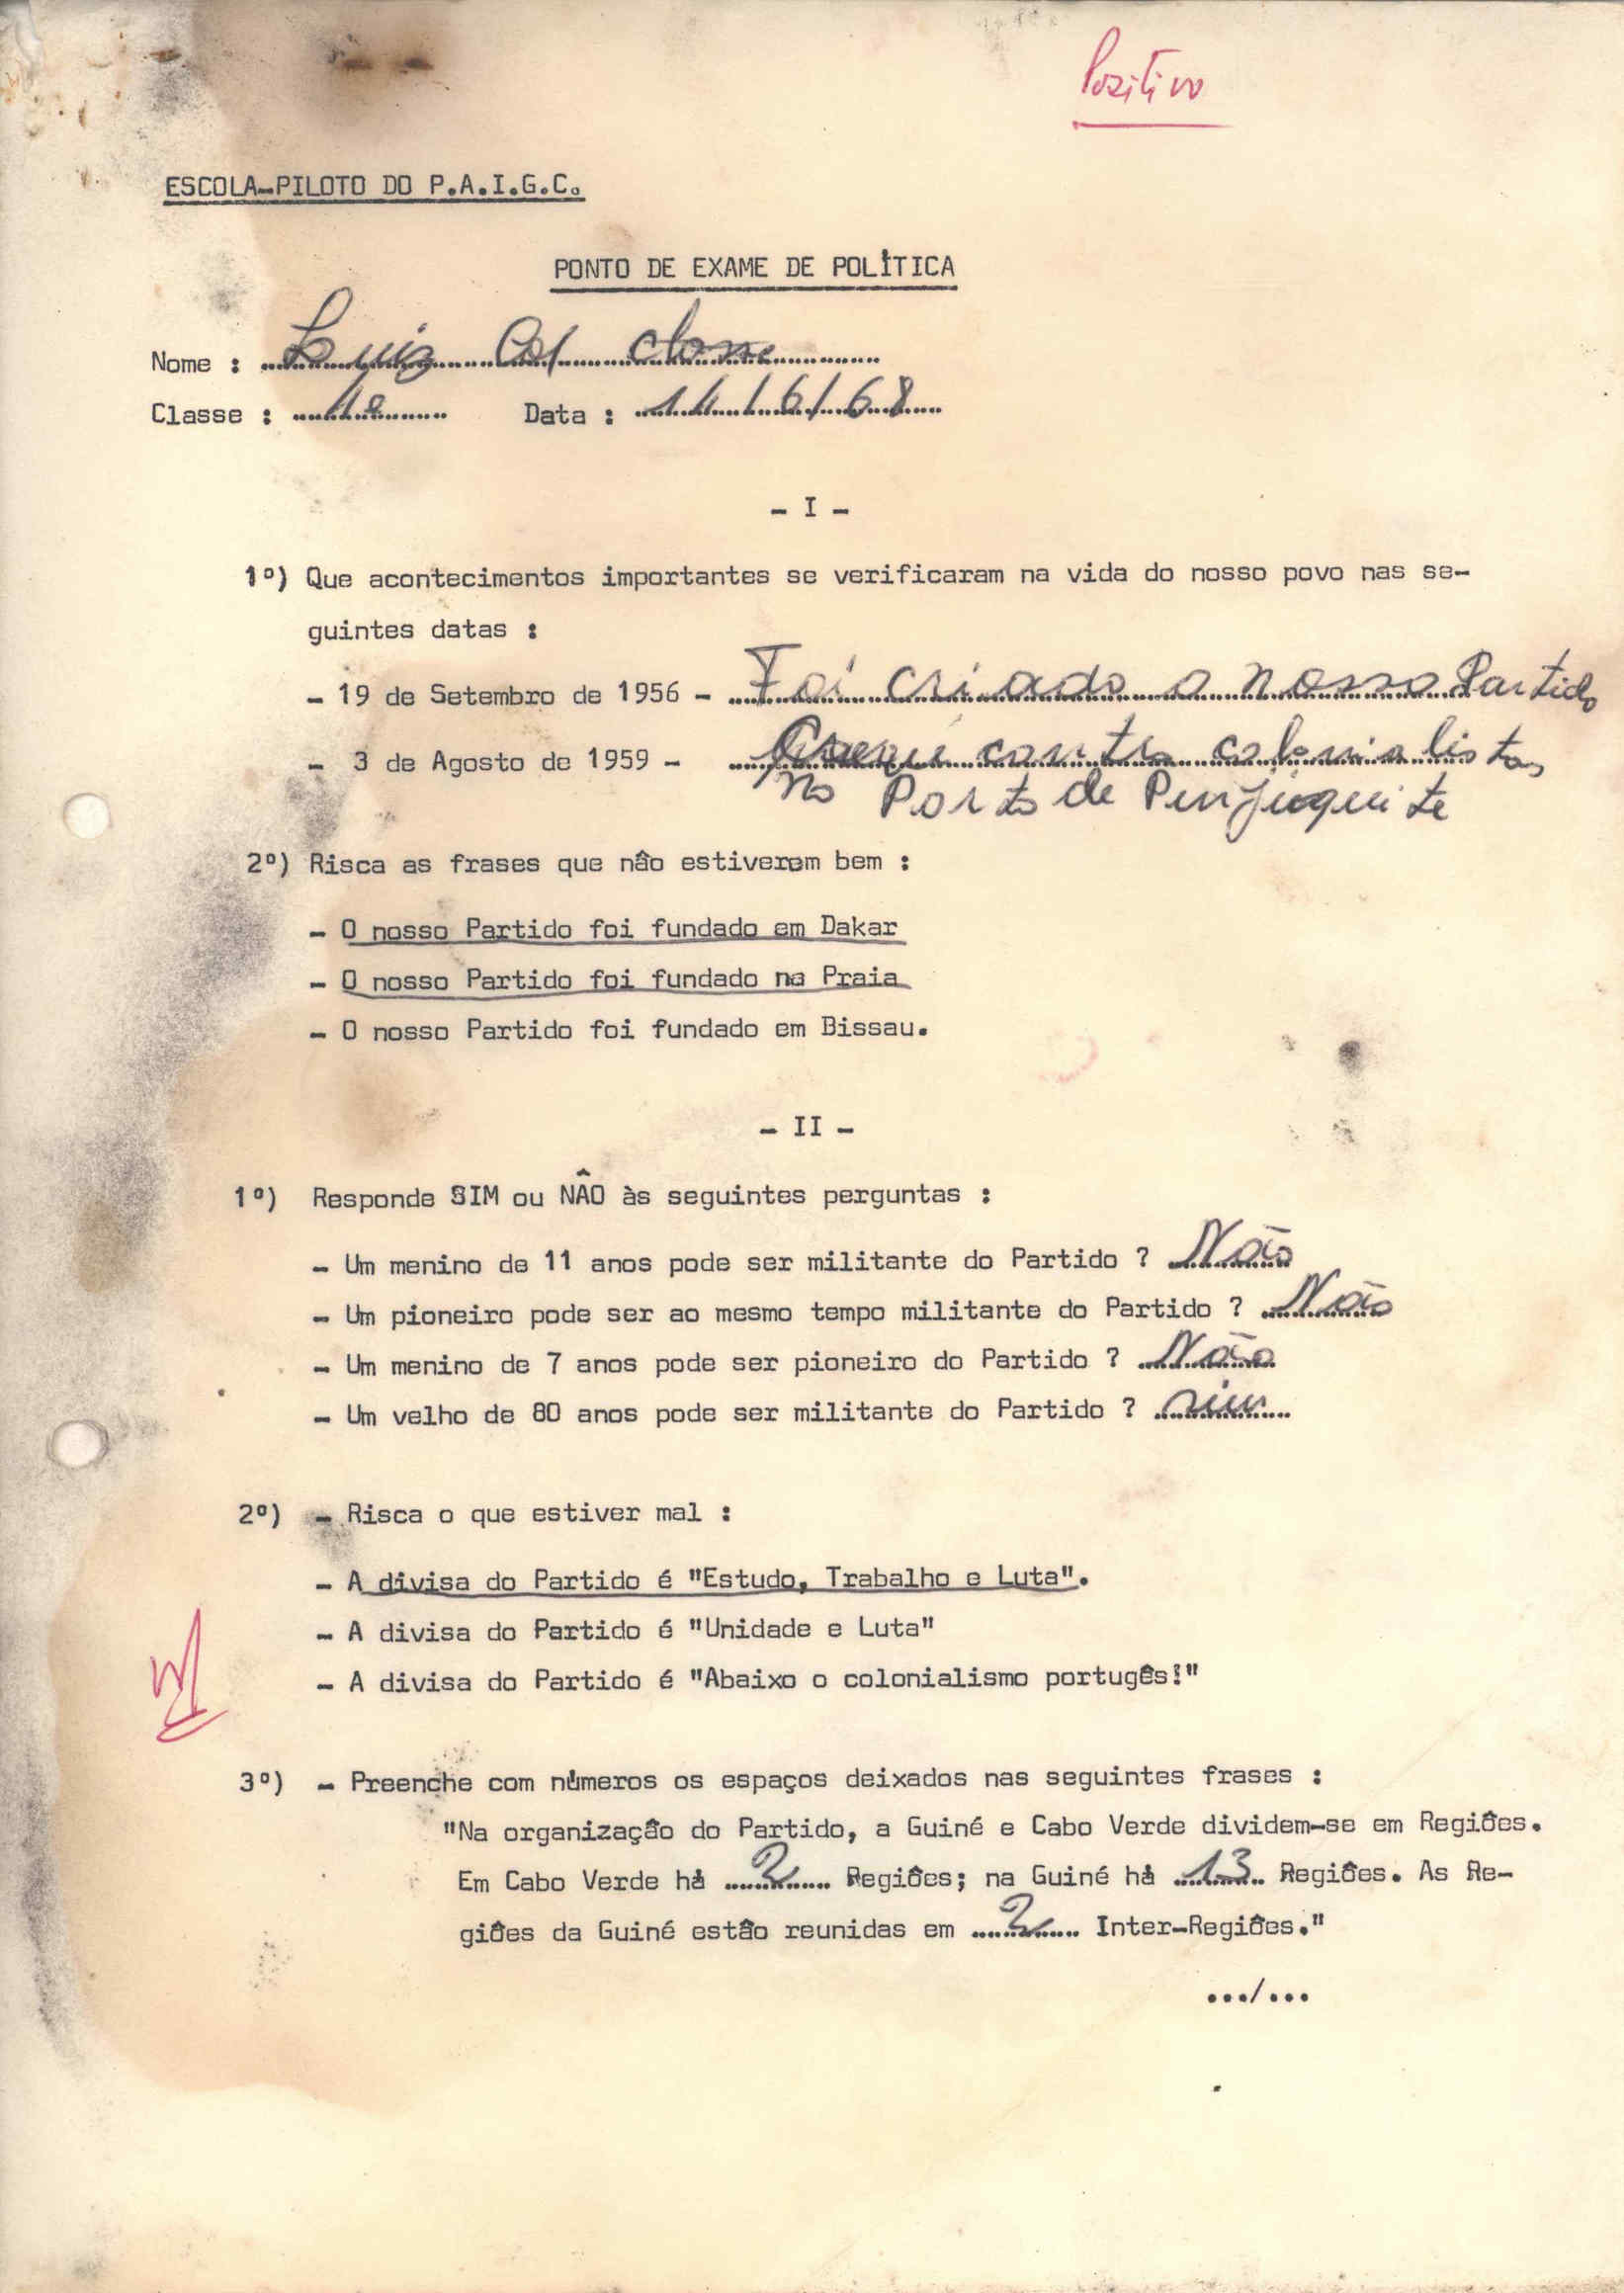 Pozitivo
ESCOLA-PILOTO DO P.A.I.G.C.
PONTO DE EXAME DE POLÍTICA
Nome : Luiz
Classe : 1ª Data : 14/6/68
- I -
1º) Que acontecimentos importantes se verificaram na vida do nosso povo nas se-
guintes datas :
- 19 de Setembro de 1956 - Foi criado o nosso Partido
- 3 de Agosto de 1959 - contra colonialistas
no Porto de Pinjiguite
2º) Risca as frases que nâo estiverem bem :
- O nosso Partido foi fundado em Dakar
- O nosso Partido foi fundado na Praia
- O nosso Partido foi fundado em Bissau.
- II -
1º) Responde SIM ou NÂO às seguintes perguntas :
- Um menino de 11 anos pode ser militante do Partido ? Não
- Um pioneiro pode ser ao mesmo tempo militante do Partido ? Não
- Um menino de 7 anos pode ser pioneiro do Partido ? Não
- Um velho de 80 anos pode ser militante do Partido ? sim
2º) - Risca o que estiver mal :
- A divisa do Partido é "Estudo, Trabalho e Luta".
- A divisa do Partido é "Unidade e Luta"
- A divisa do Partido é "Abaixo o colonialismo portugês!"
3º) - Preenche com números os espaços deixados nas seguintes frases :
"Na organizaçâo do Partido, a Guiné e Cabo Verde dividem-se em Regiôes.
Em Cabo Verde há 2 Regiôes; na Guiné há 13 Regiôes. As Re-
giôes da Guiné estâo reunidas em 2 Inter-Regiôes."
.../...